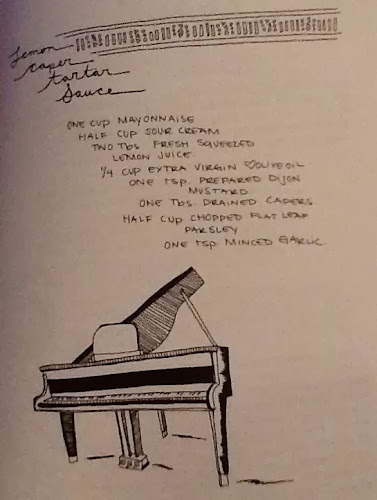 Lemon
Caper
tartar
Sauce
ONE CUP MAYONNAISE
HALF CUP SOUR CREAM
TWO Tbs FRESH SQUEEZED
LEMON JUICE
1/4 CUP EXTRA VIRGIN ♡OLIVE OIL
ONE tsp. PREPARED DIJON
MUSTARD
ONE Tbs. DRAINED CAPERS
HALF CUP CHOPPED FLAT LEAF
PARSLEY
ONE tsp MINCED GARLIC